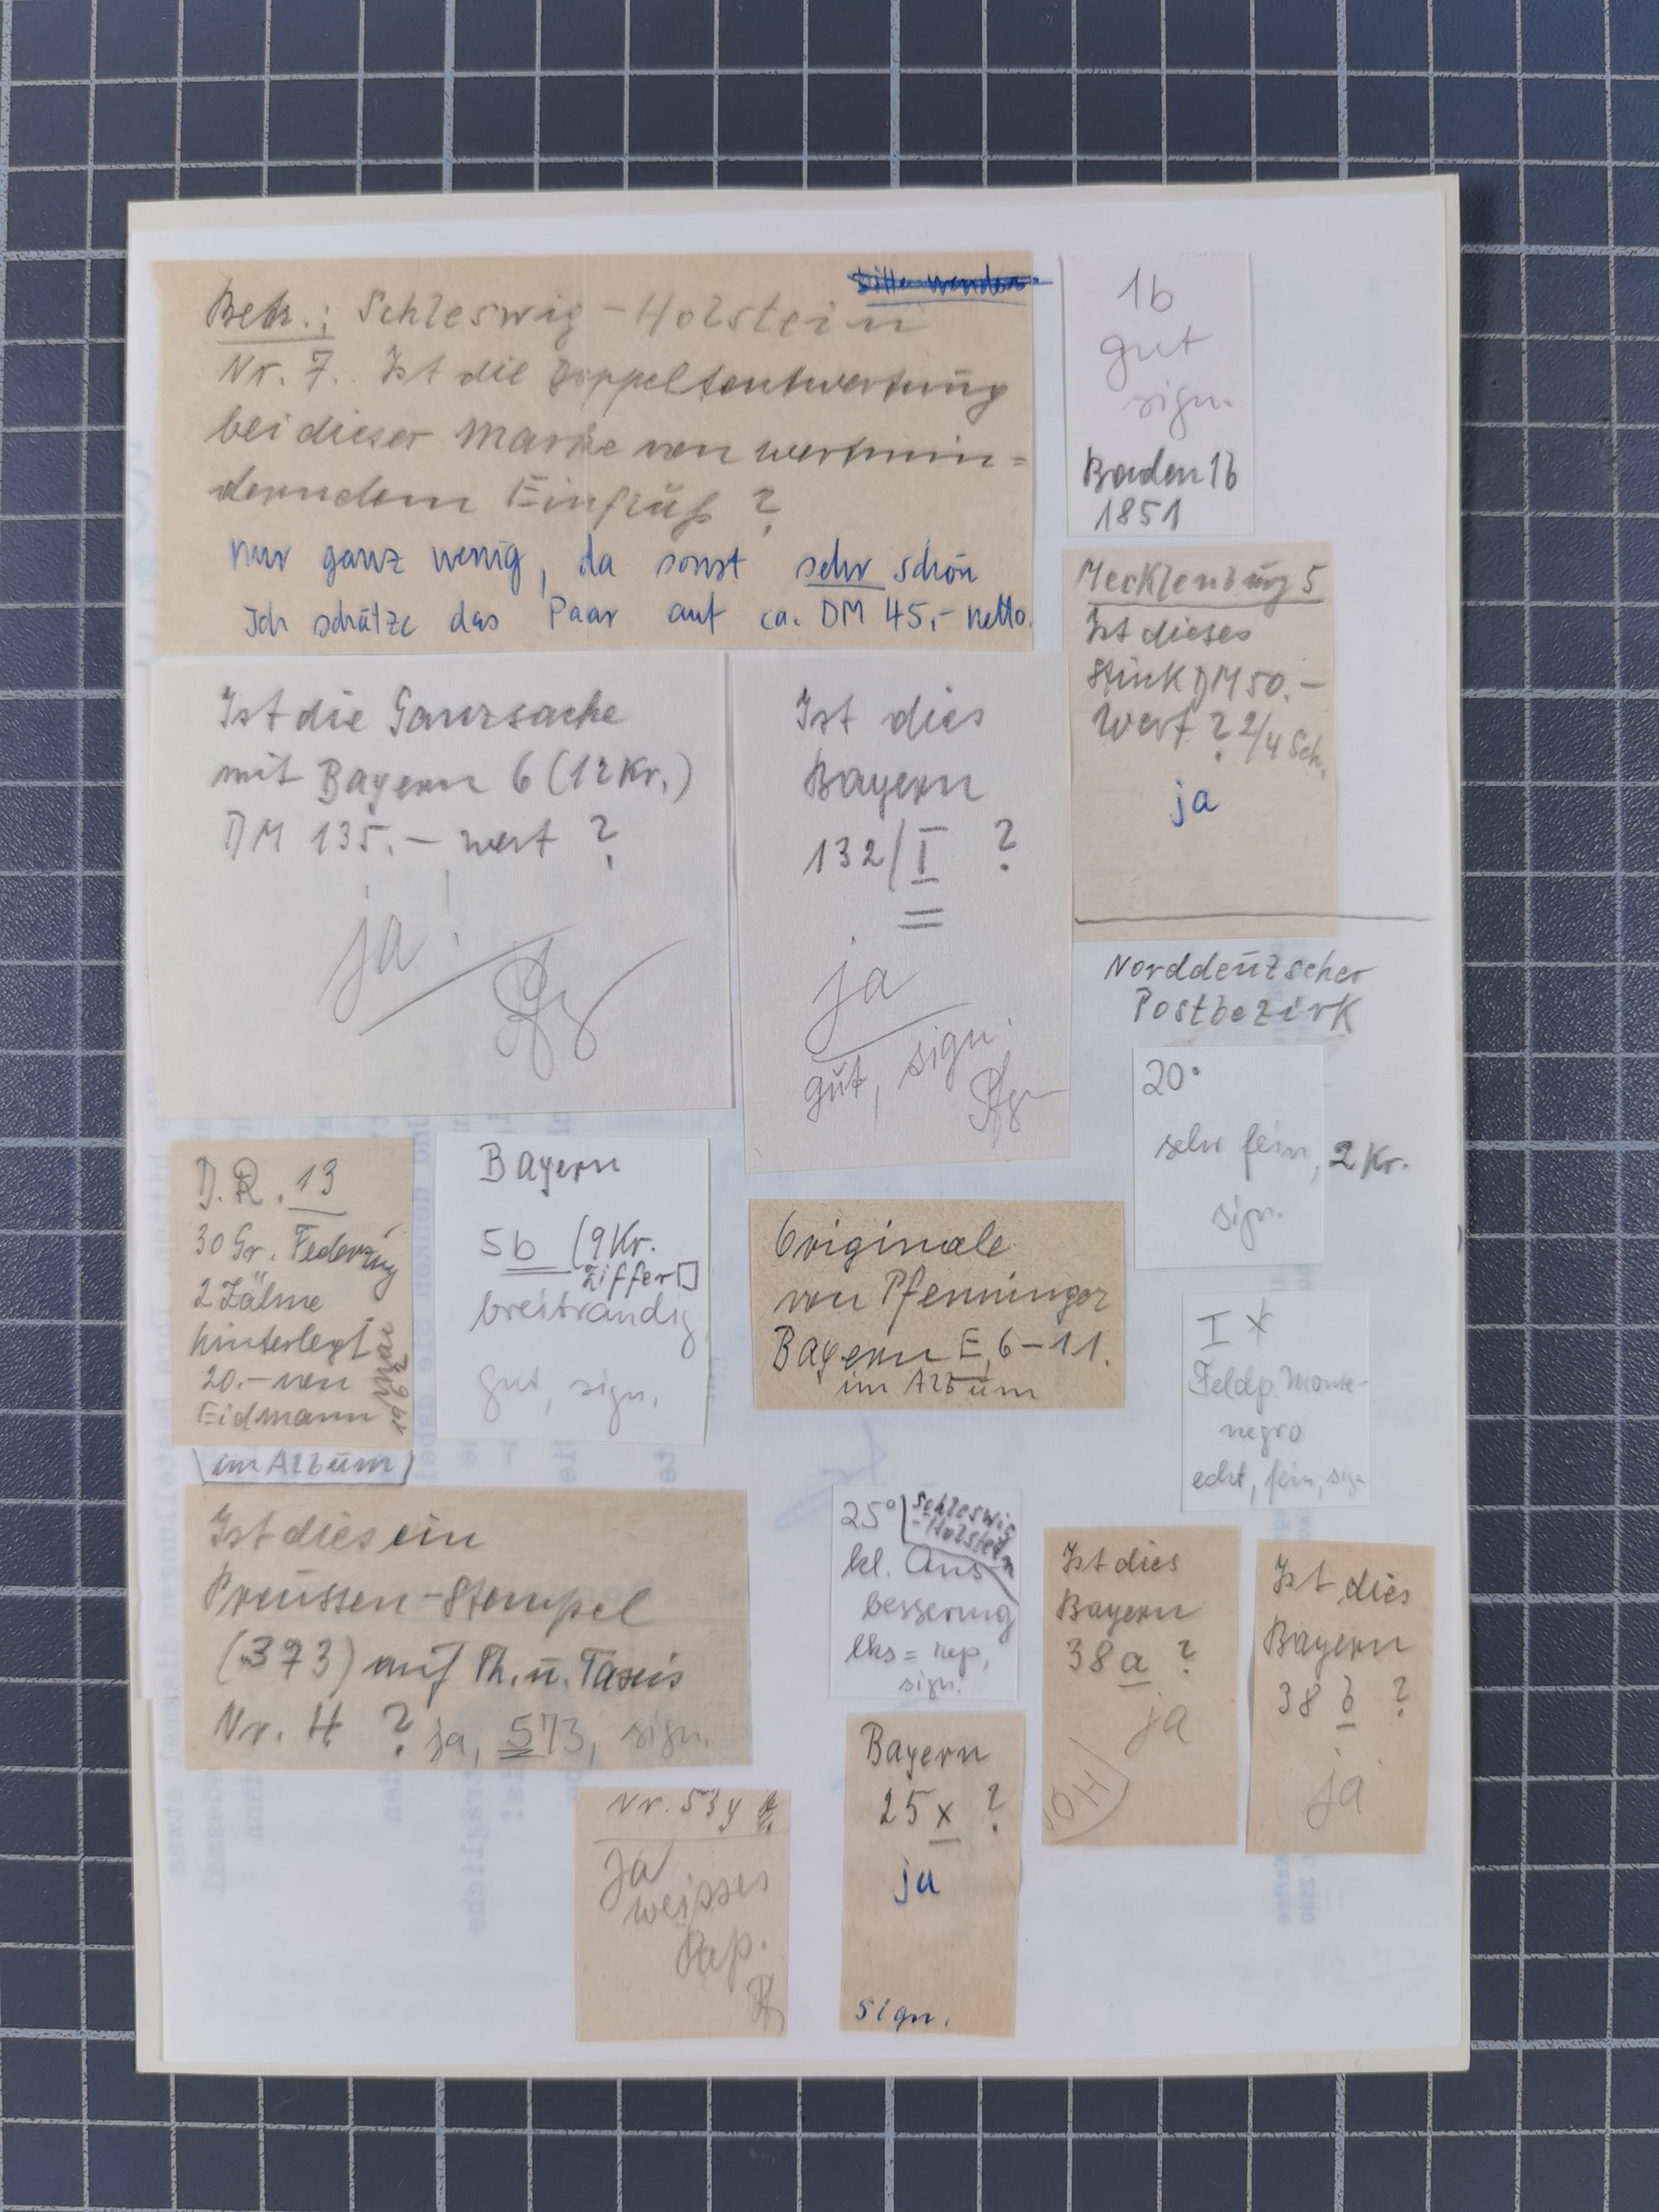 Betr.: Schleswig-Holstein
Nr. 7. Ist die Doppeltentwertung
bei dieser Marke von wertmin=
derndem Einfluß ?
nur ganz wenig, da sonst sehr schön
Ich schätze das Paar auf ca. DM 45,- netto.
bitte wenden.
1b
gut
sign.
Baden 1b
1851
Mecklenburg 5
Ist dieses
Stück DM 50.-
Wert ? 2/4 Sch.
ja
Ist die Ganzsache
mit Bayern 6 (12 Kr.)
DM 135.- wert ?
ja!
Ist dies
Bayern
132/I ?
ja
gut, sign.
Norddeutscher
Postbezirk
20°
sehr fein, 2 Kr.
sign.
D.R. 13
30 Gr. Federzug
2 Zähne
hinterlegt
20.- von
Eidmann
im Album
Bayern
5b (9 Kr.
Ziffer
breitrandig
gut, sign.
Originale
von Pfenninger
Bayern E, 6-11.
im Album
I
Feldp. Monte-
negro
echt, fein, sign
Ist dies ein
Preussen-Stempel
(373) auf Th. u. Taxis
Nr. 4 ? ja, 573, sign.
25° Schleswig
-Holstein
kl. Aus
besserung
lks = rep,
sign.
Ist dies
Bayern
38a ?
ja
Ist dies
Bayern
38 b ?
ja
Nr. 53y
ja
weisses
Pap.
Bayern
25 x ?
ja
sign.